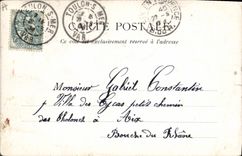 CARTE POSTALE
Ce côté est exclusivement réservé à l'adresse
TOULON-S-MER
VAR
TOULON-S-MER
VAR
Monsieur Gabriel Constantin
Villa des Cycas petit chemin
des à Aix
Bouches du Rhône